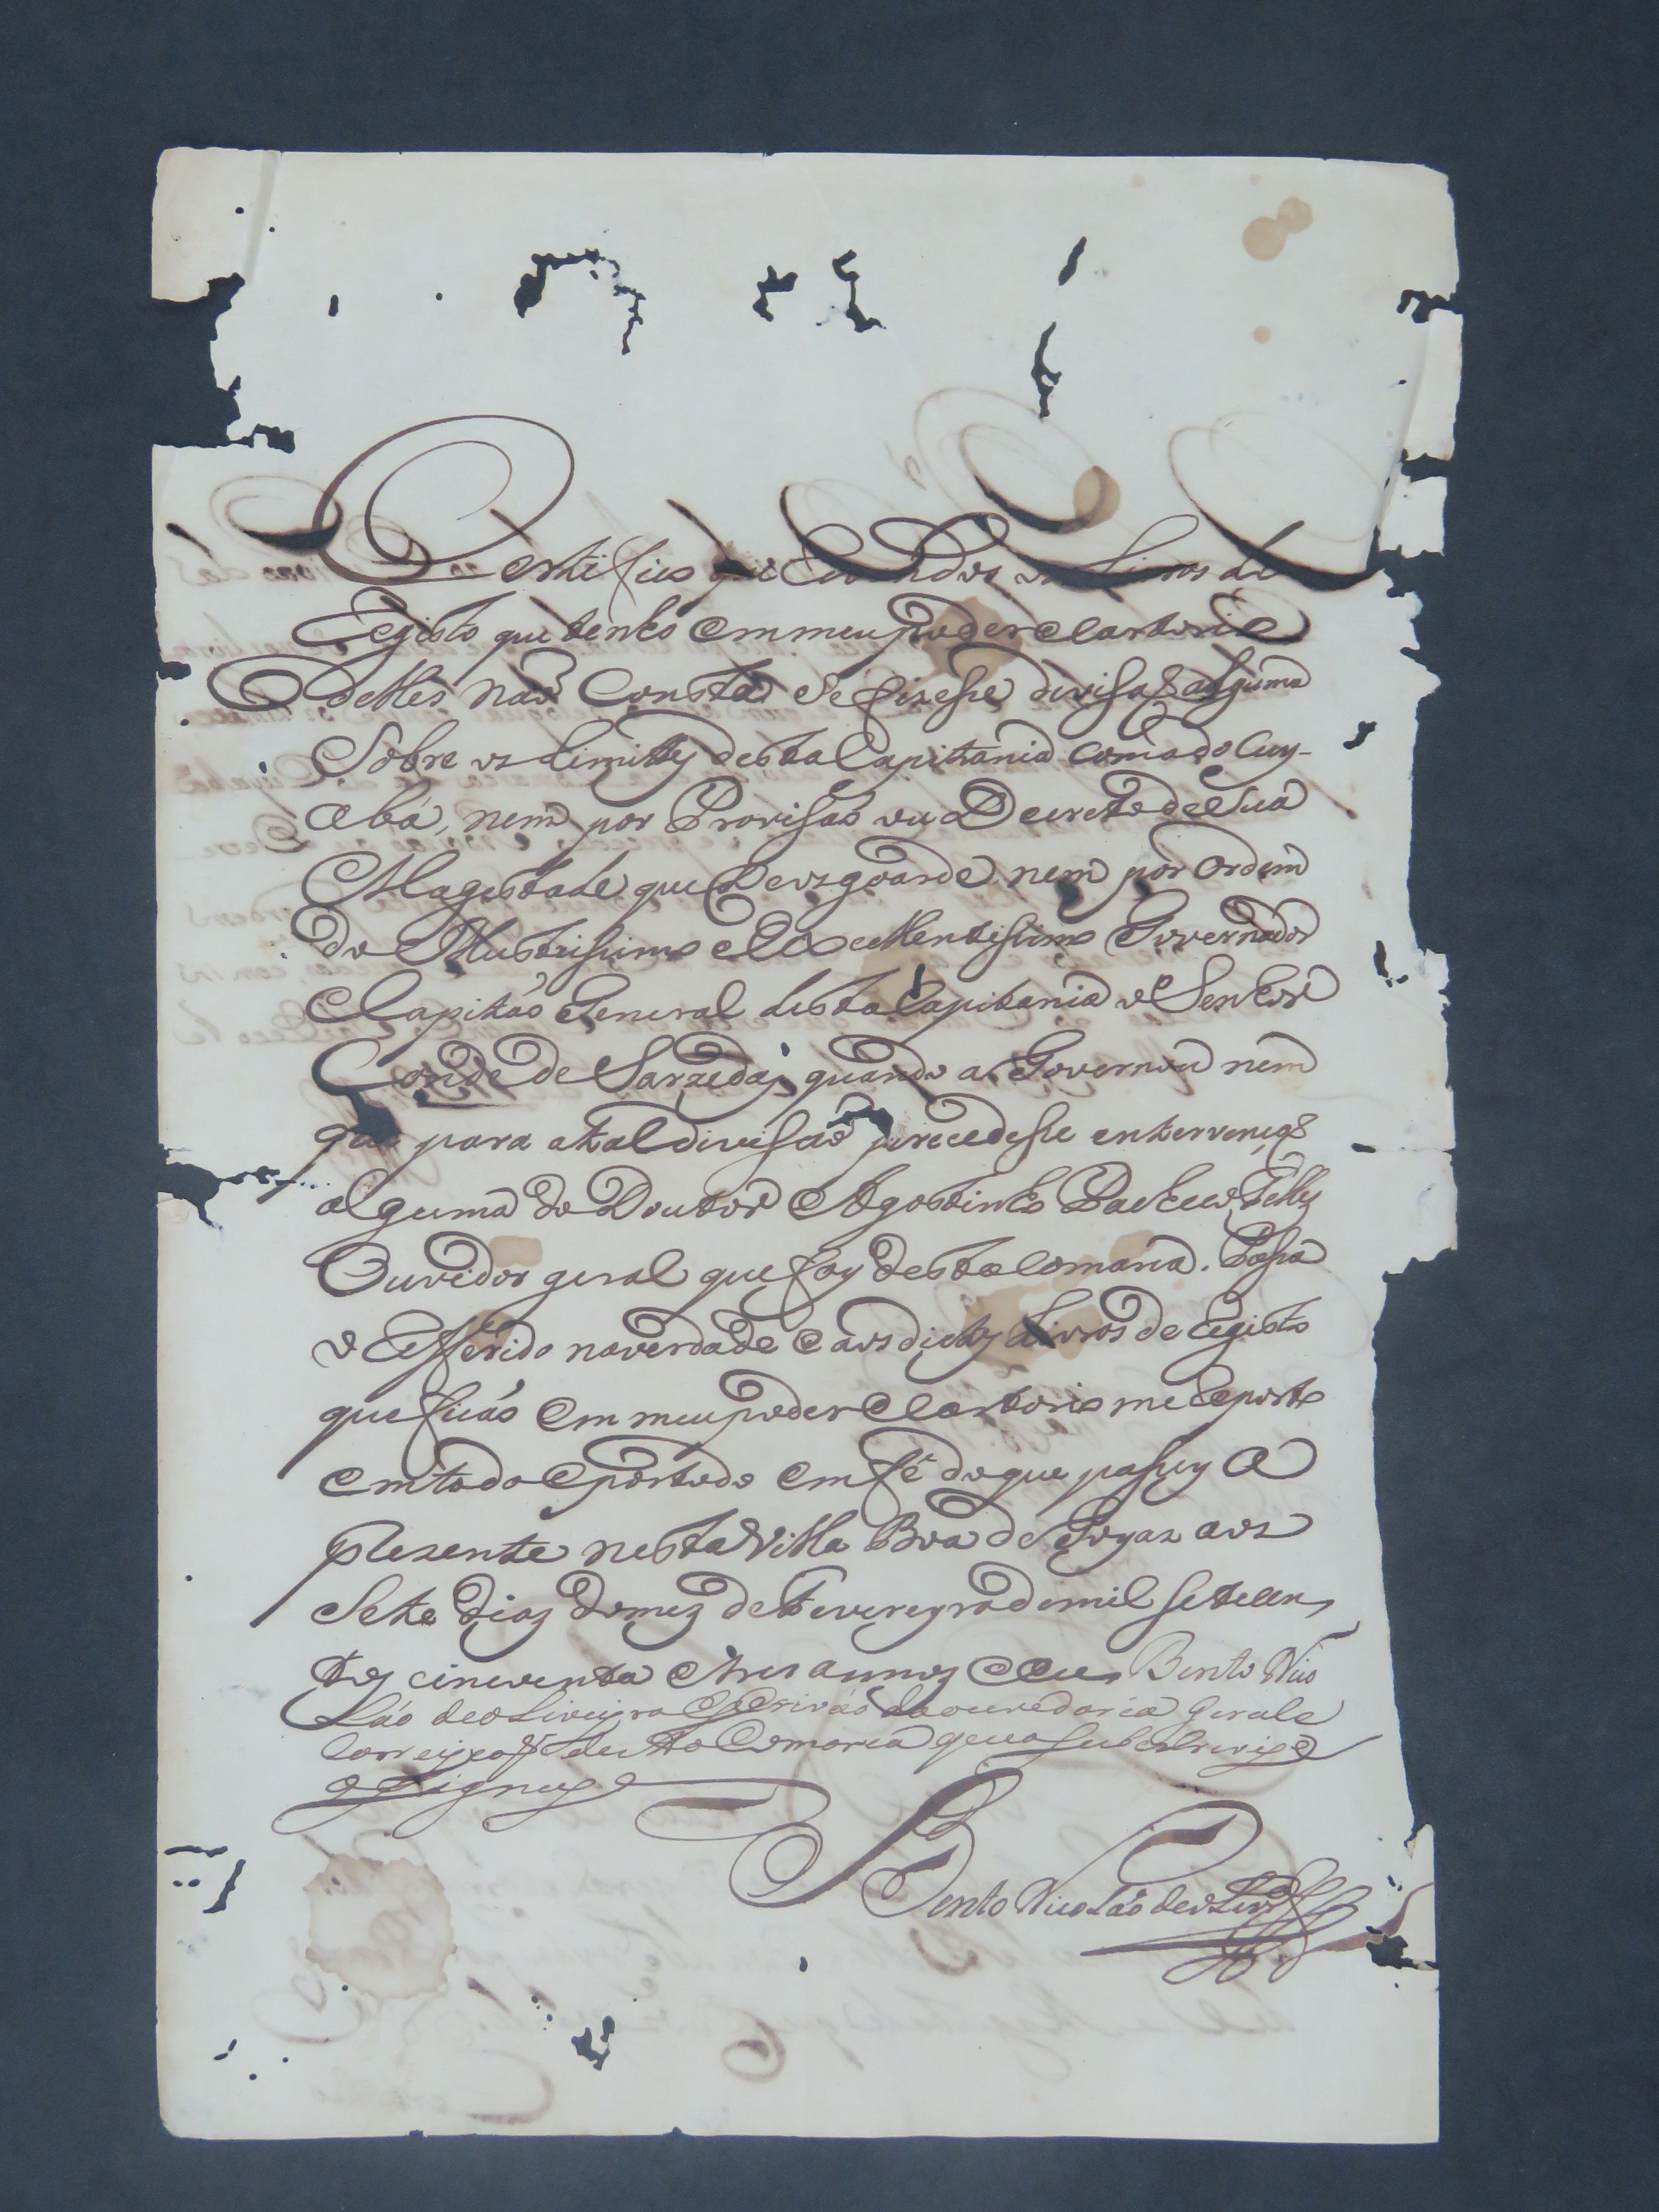 Certifico que Revendos os Livros de
Registo que tenho em meu poder e Cartorio
delles não Consta se fizesse divisaõ alguma
Sobre os Limittes desta Capitania com a do Cuy-
abá, nem por Provisaõ ou Decreto de Sua
Magestade que Deos goarde, nem por ordem
do Illustrissimo e Excellentissimo Governador
e Capitaõ General desta Capitania o Senhor
Conde de Sarzedas quando a Governou nem
que para a tal divisaõ precedesse entervençaõ
alguma do Doutor Agostinho Pacheco Telles
Ouvidor geral que foy desta Comarca. Passa
o Refferido na verdade e aos dictos Livros de Registo
que ficaõ em meu poder e Cartorio me Reporto
em todo e por todo em fé do que passey a
prezente nesta Villa Boa de Goyaz aos
Sete dias do mez de Fevereyro de mil setecen
tos cincoenta e tres annos e Eu Bento Nico
Láo de oLiveyra Escrivaõ da ouvedoria geral e
Correyçaõ desta Comarca que o sub escrevy e
aSigney
Bento NicoLáo de oLivrª